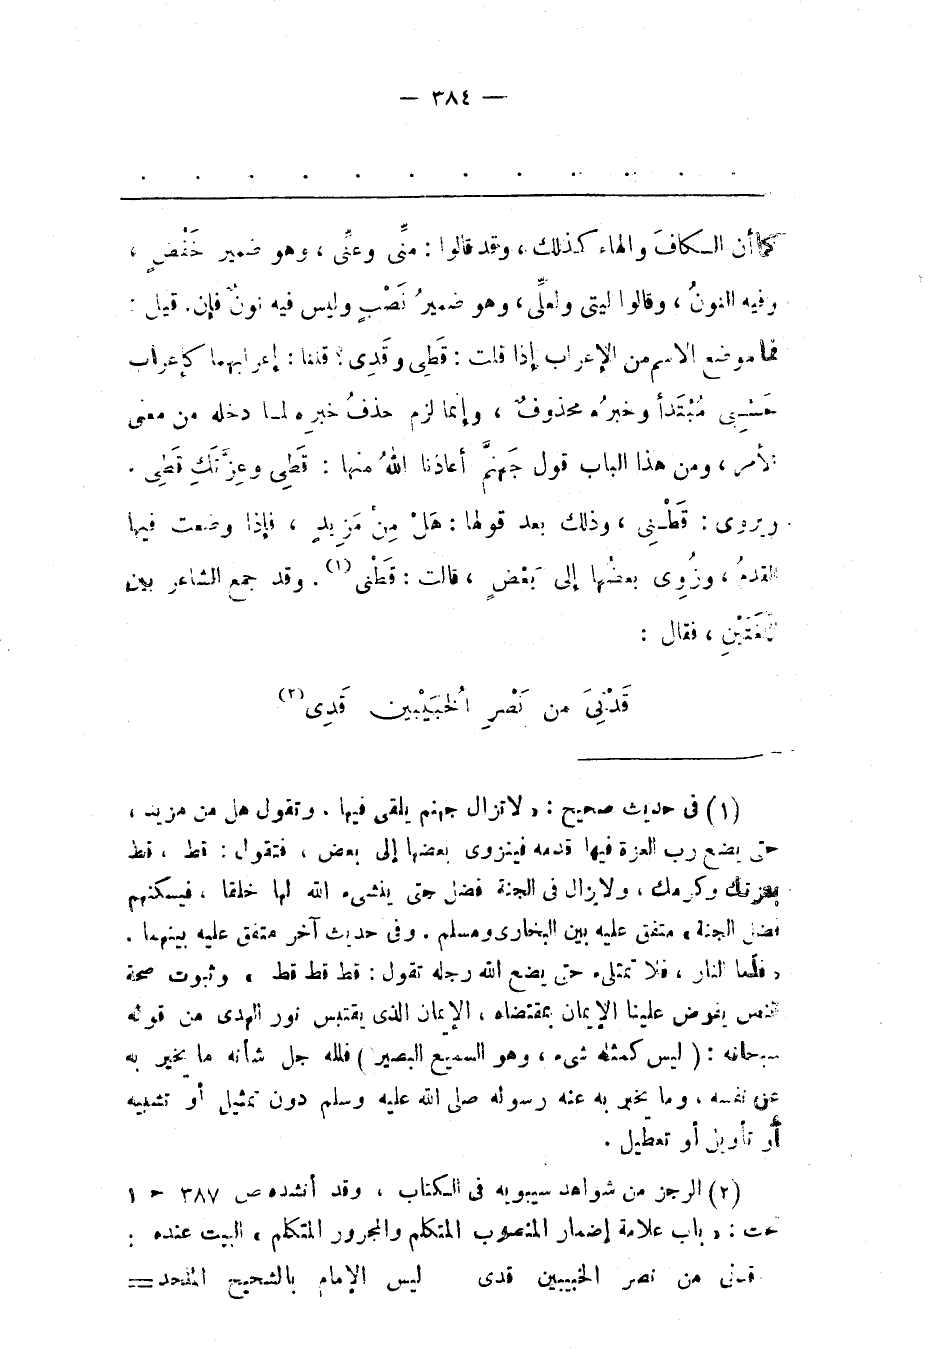 — ٣٨٤ —
كما أن الكافَ والهاء كذلك ، وقد قالوا : منِّى وعنِّى ، وهو ضمير خَفْضٍ ،
وفيه النونُ ، وقالوا ليتى ولعلِّى ، وهو ضميرُ نَصْبٍ وليس فيه نونٌ فإن. قيل :
فما موضع الاسم من الإعراب إذا قلت : قَطِى وقَدِى ؟ قلنا : إعرابهما كإعراب
حَسْبِى مُبْتَدأ وخبرُه محذوفٌ ، وإنما لزم حذفُ خبرِه لما دخله من معنى
الأمر ، ومن هذا الباب قول جَهنَّم أعاذنا اللهُ منها : قَطِى وعِزَّتكِ قَطِى .
ويروى : قَطْنِى ، وذلك بعد قولها : هَلْ مِنْ مَزِيدٍ ، فإذا وضعت فيها
القدمُ ، وزُوِى بعضُها إلى بَعْضٍ ، قالت : قَطْنى (١) . وقد جمع الشاعر بين
اللُّغَتَيْنِ ، فقال :
قَدْنِىَ من نَصْرِ الْخبَيْبين قَدِى (٢)
(١) فى حديث صحيح : « لاتزال جهنم يلقى فيها . وتقول هل من مزيد ،
حتى يضع رب العزة فيها قدمه فينزوى بعضها إلى بعض ، فتقول : قط ، قط
بعزتك وكرمك ، ولايزال فى الجنة فضل حتى ينشىء الله لها خلقا ، فيسكنهم
فضل الجنة » متفق عليه بين البخارى ومسلم . وفى حديث آخر متفق عليه بينهما .
« فأما النار ، فلا تمتلىء حتى يضع الله رجله تقول : قط قط قط » وثبوت صحة
النص يفرض علينا الإيمان بمقتضاه ، الإيمان الذى يقتبس نور الهدى من قوله
سبحانه : ( ليس كمثله شىء ، وهو السميع البصير ) فلله جل شأنه ما يخبر به
عن نفسه ، وما يخبر به عنه رسوله صلى الله عليه وسلم دون تمثيل أو تشبيه
أو تأويل أو تعطيل .
(٢) الرجز من شواهد سيبويه فى الكتاب ، وقد أنشده ص ٣٨٧ ح ١
تحت : « باب علامة إضمار المنصوب المتكلم والمجرور المتكلم » البيت عنده :
قدنى من نصر الخبيبين قدى ليس الإمام بالشحيح الملحد =